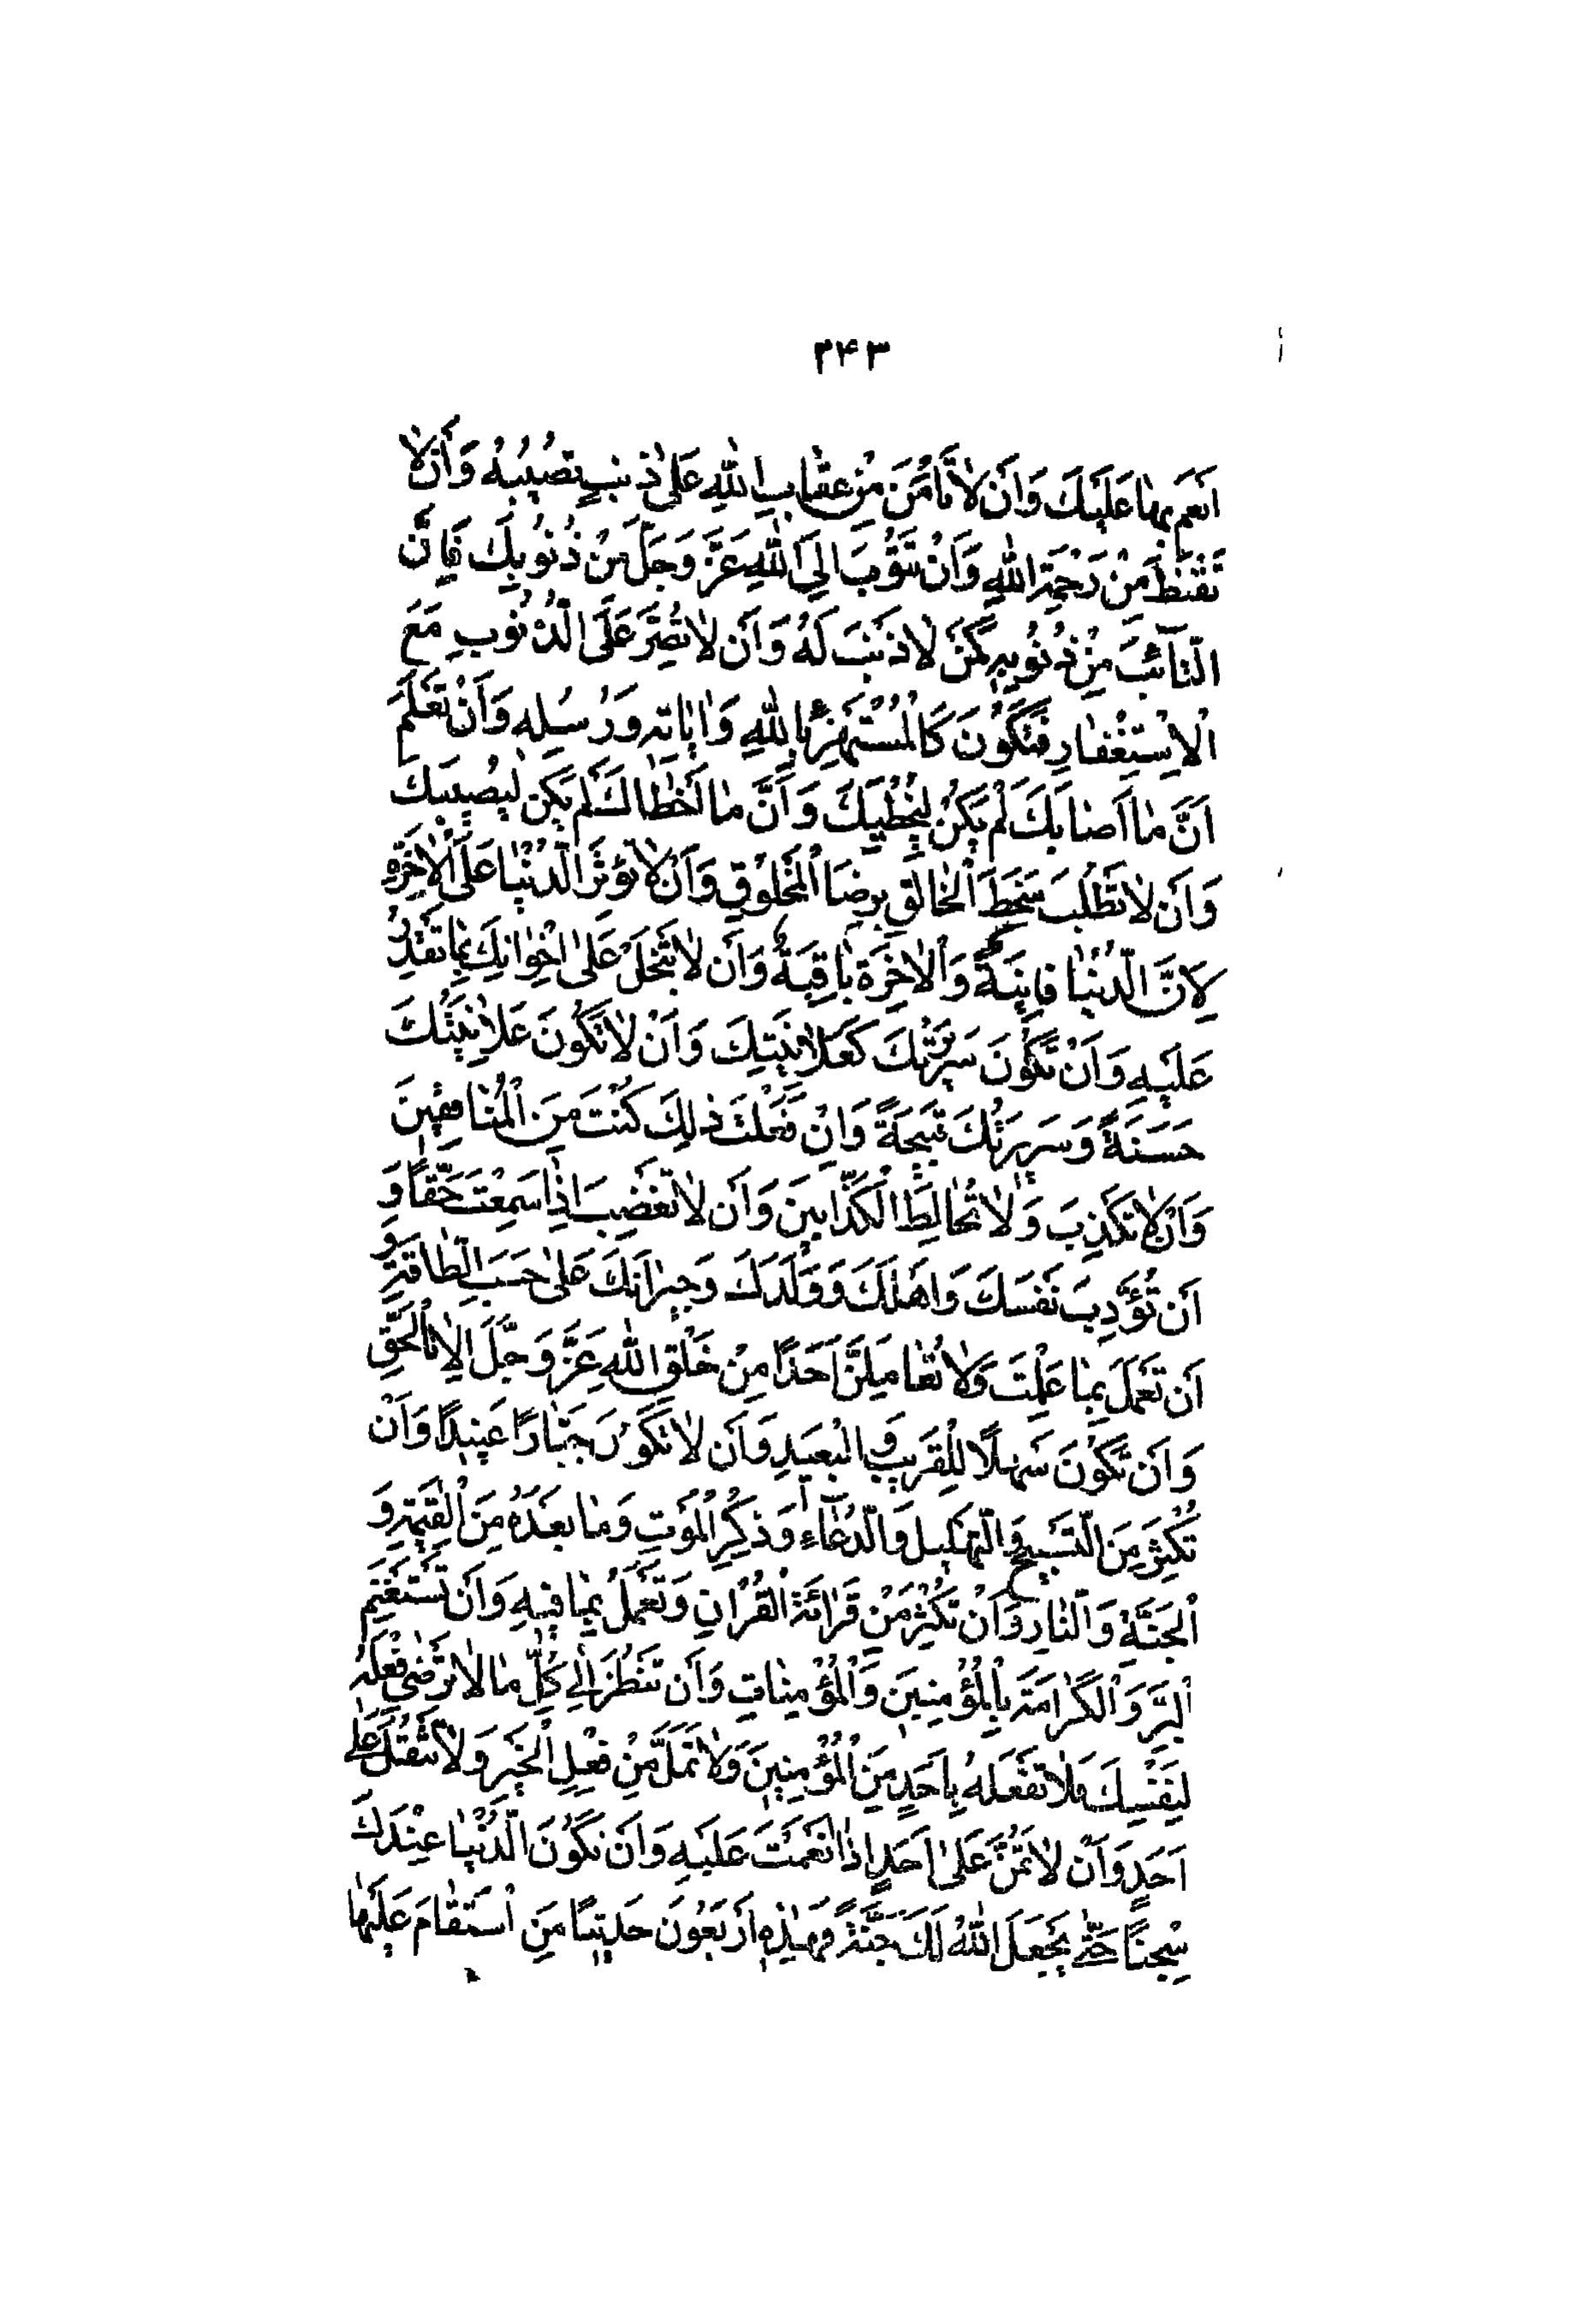 ۲۴۳
اَنْعَمَ بِهٰا عَلَيْكَ وَاَنْ لاٰتَأْمَنَ مِنْ عِقٰابِ اللّٰهِ عَلىٰ ذَنْبٍ تُصٖيبُهُ وَاَنْ لاٰ
تَقْنَطَ مِنْ رَحْمَةِ اللّٰهِ وَاَنْ تَتُوبَ اِلَى اللّٰهِ عَزَّ وَجَلَّ مِنْ ذُنُوبِكَ فَاِنَّ
التّٰآئِبَ مِنْ ذُنُوبِهِ كَمَنْ لاٰ ذَنْبَ لَهُ وَاَنْ لاٰ تُصِرَّ عَلَى الذُّنُوبِ مَعَ
الْاِسْتِغْفٰارِ فَتَكُونَ كَالْمُسْتَهْزِءِ بِاللّٰهِ وَاٰيٰاتِهِ وَرُسُلِهِ وَاَنْ تَعْلَمَ
اَنَّ مٰا اَصٰابَكَ لَمْ يَكُنْ لِيُخْطِيَكَ وَاَنَّ مٰا اَخْطٰاكَ لَمْ يَكُنْ لِيُصٖيبَكَ
وَاَنْ لاٰ تَطْلُبَ سَخَطَ الْخٰالِقِ بِرِضَا الْمَخْلُوقِ وَاَنْ لاٰ تُؤْثِرَ الدُّنْيٰا عَلَى الْاٰخِرَةِ
لِاَنَّ الدُّنْيٰا فٰانِيَةٌ وَالْاٰخِرَةَ بٰاقِيَةٌ وَاَنْ لاٰ تَبْخَلَ عَلىٰ اِخْوٰانِكَ بِمٰا تَقْدِرُ
عَلَيْهِ وَاَنْ تَكُونَ سَرٖيرَتُكَ كَعَلاٰنِيَتِكَ وَاَنْ لاٰ تَكُونَ عَلاٰنِيَتُكَ
حَسَنَةً وَسَرٖيرَتُكَ قَبٖيحَةً وَاِنْ فَعَلْتَ ذٰلِكَ كُنْتَ مِنَ الْمُنٰافِقٖينَ
وَاَنْ لاٰ تَكْذِبَ وَلاٰ تُخٰالِطَ الْكَذّٰابٖينَ وَاَنْ لاٰ تَغْضَبَ اِذٰا سَمِعْتَ حَقّاً وَ
اَنْ تُؤَدِّبَ نَفْسَكَ وَاَهْلَكَ وَوَلَدَكَ وَجٖيرٰانَكَ عَلىٰ حَسَبِ الطّٰاقَةِ وَ
اَنْ تَعْمَلَ بِمٰا عَلِمْتَ وَلاٰ تُعٰامِلَنَّ اَحَداً مِنْ خَلْقِ اللّٰهِ عَزَّ وَجَلَّ اِلاّٰ بِالْحَقِّ
وَاَنْ تَكُونَ سَهْلاً لِلْقَرٖيبِ وَالْبَعٖيدِ وَاَنْ لاٰ تَكُونَ جَبّٰاراً عَنٖيداً وَاَنْ
تُكْثِرَ مِنَ التَّسْبٖيحِ وَالتَّهْلٖيلِ وَالدُّعٰآءِ وَذِكْرِ الْمَوْتِ وَمٰا بَعْدَهُ مِنَ الْقِيٰمَةِ وَ
الْجَنَّةِ وَالنّٰارِ وَاَنْ تُكْثِرَ مِنْ قَرٰائَةِ الْقُرْاٰنِ وَتَعْمَلَ بِمٰا فٖيهِ وَاَنْ تَسْتَغْنِمَ
الْبِرَّ وَالْكَرٰامَةَ بِالْمُؤْمِنٖينَ وَالْمُؤْمِنٰاتِ وَاَنْ تَنْظُرَ اِلىٰ كُلِّ مٰا لاٰ تَرْضىٰ فِعْلَهُ
لِنَفْسِكَ فَلاٰ تَفْعَلَهُ بِاَحَدٍ مِنَ الْمُؤْمِنٖينَ وَلاٰ تَمَلَّ مِنْ فِعْلِ الْخَيْرِ وَلاٰ تَثْقُلَ عَلىٰ
اَحَدٍ وَاَنْ لاٰ تَمُنَّ عَلىٰ اَحَدٍ اِذٰا اَنْعَمْتَ عَلَيْهِ وَاَنْ تَكُونَ الدُّنْيٰا عِنْدَكَ
سِجْناً حَتّٰى يَجْعَلَ اللّٰهُ لَكَ جَنَّةً فَهٰذِهِ اَرْبَعُونَ حَدٖيثاً مَنِ اسْتَقٰامَ عَلَيْهٰا